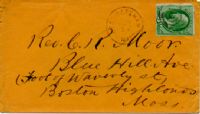 Rev. C. R. Moor
Blue Hill Ave.
(Foot of Waverly st.)
Boston Highlands
Mass.